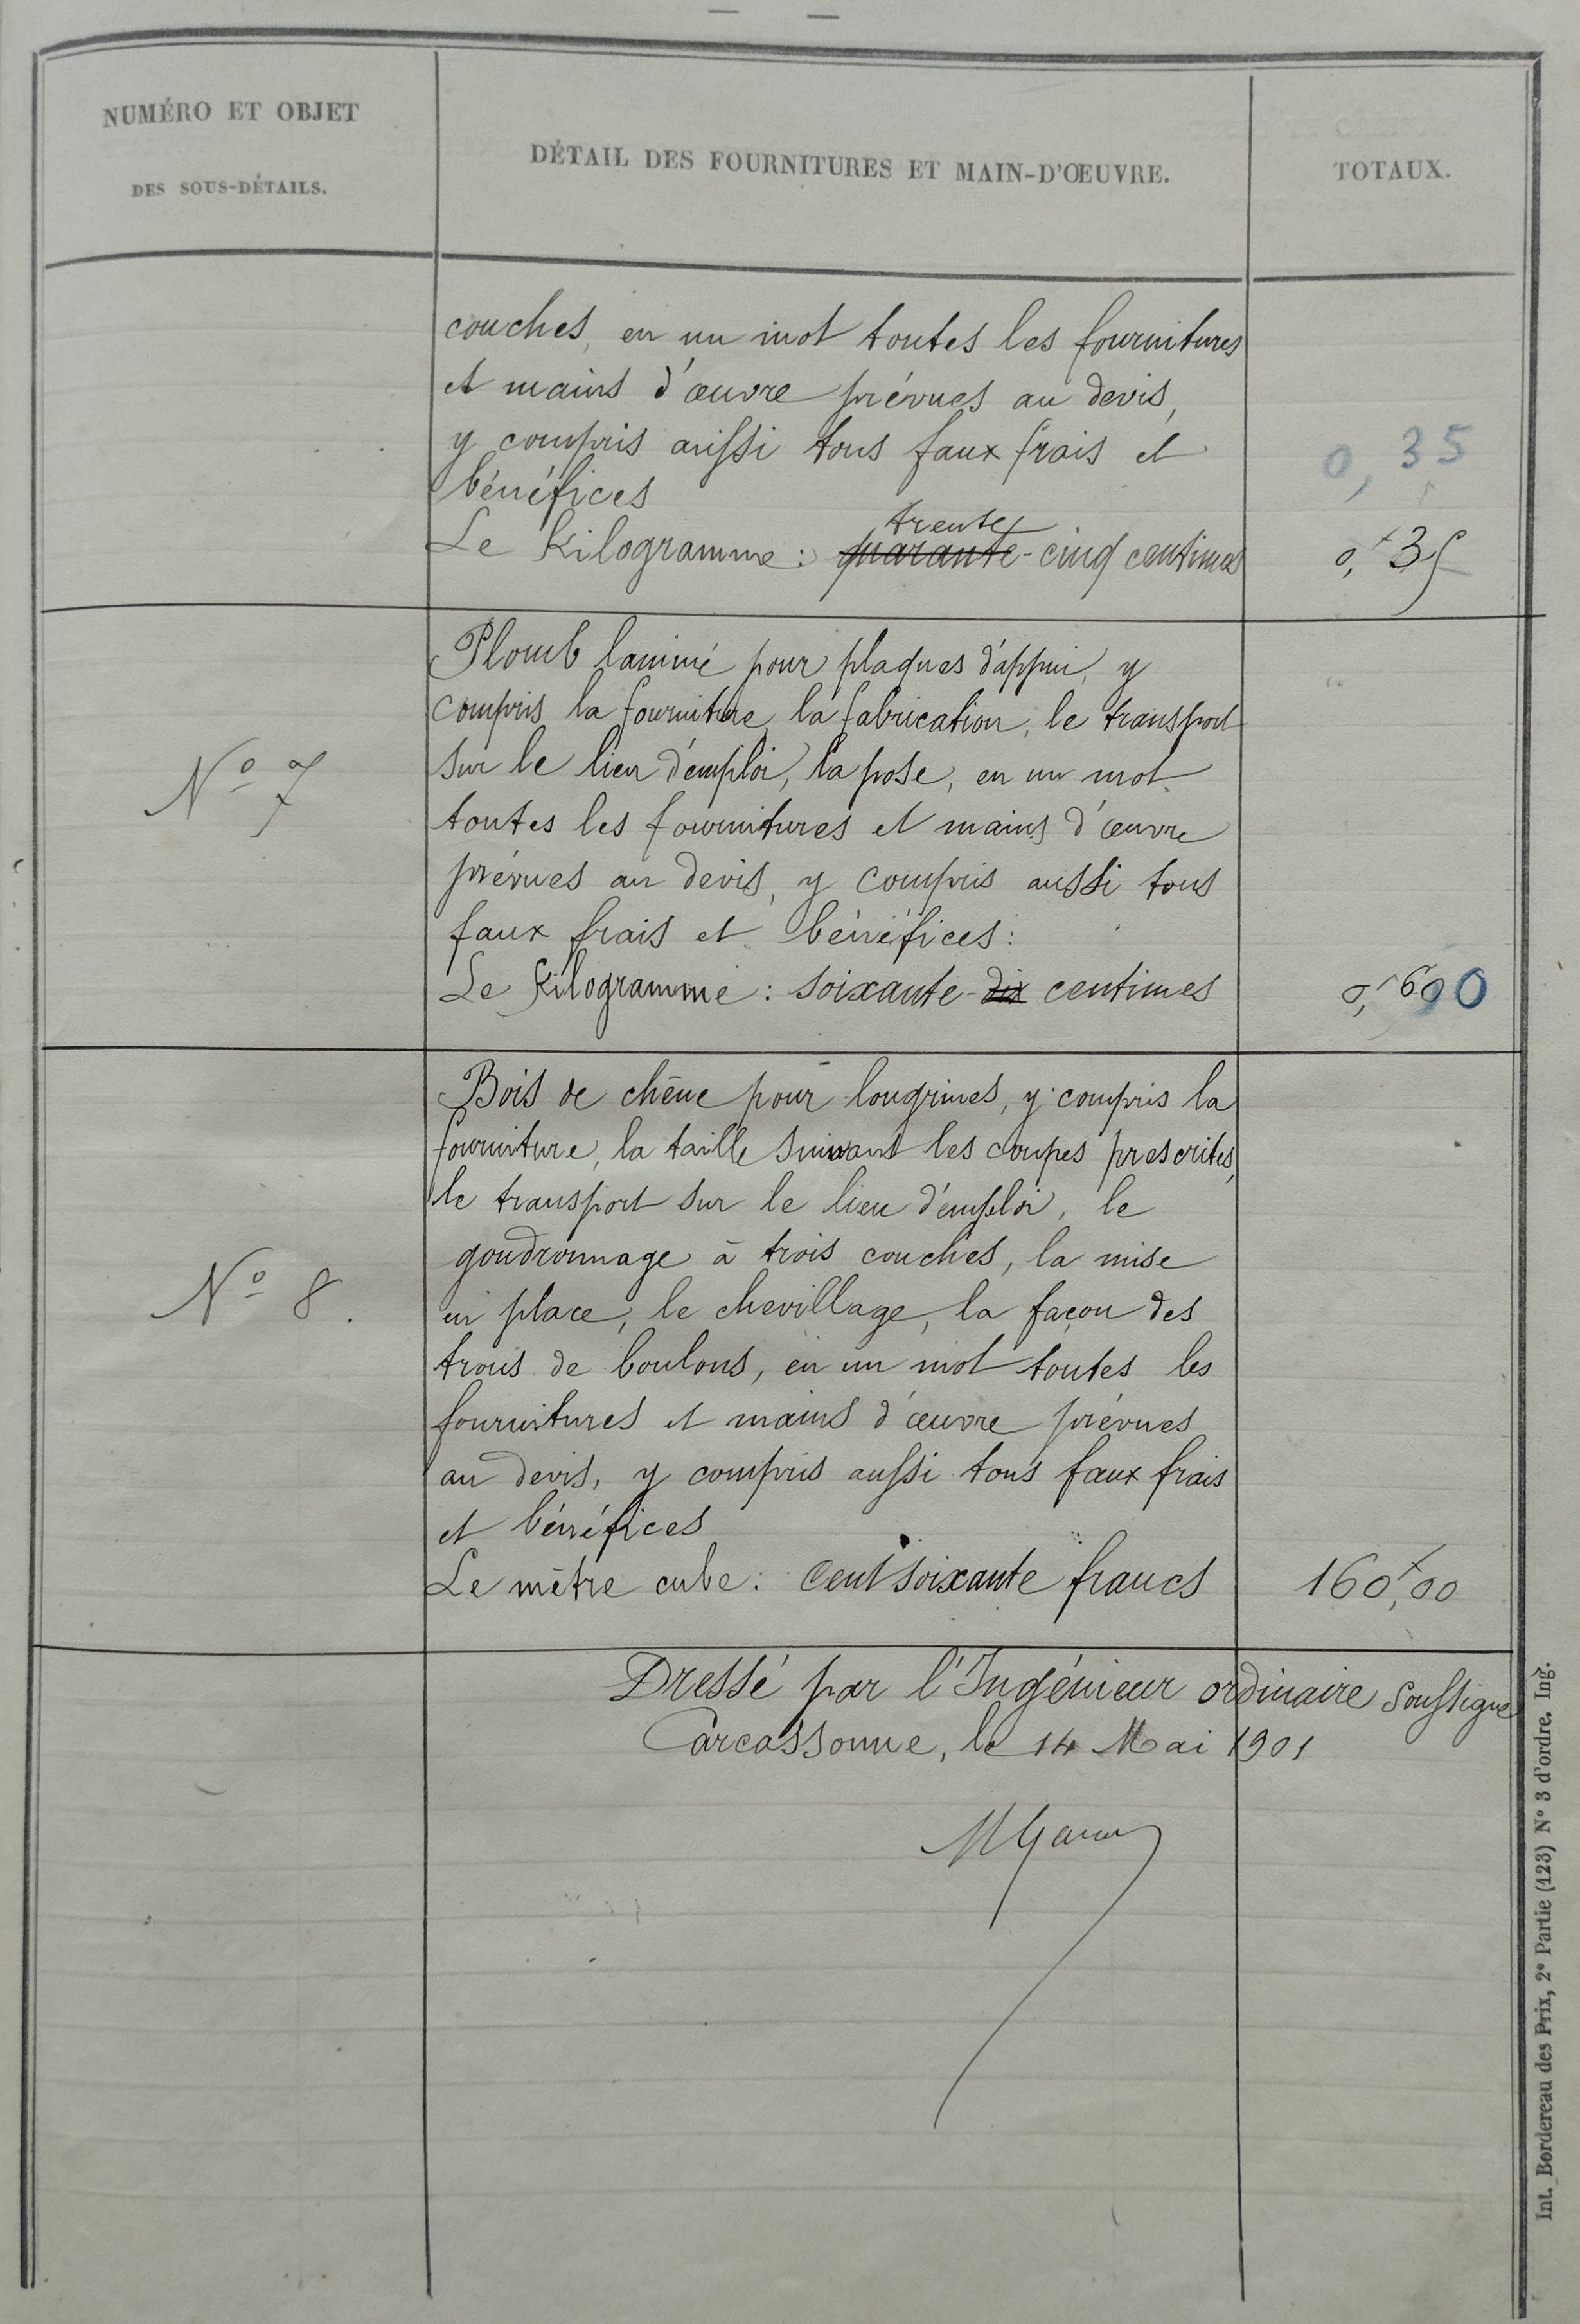 NUMÉRO ET OBJET
DES SOUS-DÉTAILS.
DÉTAIL DES FOURNITURES ET MAIN-D'ŒUVRE.
TOTAUX.
couches, en un mot toutes les fournitures
et mains d'œuvre prévues au devis,
y compris aussi tous faux frais et
bénéfices
0,35
trente
Le Kilogramme : quarante-cinq centimes
0,f 35
N° 7
Plomb laminé pour plaques d'appui, y
compris la fourniture, la fabrication, le transport
sur le lieu d'emploi, la pose, en un mot
toutes les fournitures et mains d'œuvre
prévues au devis, y compris aussi tous
faux frais et bénéfices :
Le Kilogramme : soixante-dix centimes
0,f 60
N° 8.
Bois de chêne pour longrines, y compris la
fourniture, la taille suivant les coupes prescrites,
le transport sur le lieu d'emploi, le
goudronnage à trois couches, la mise
en place, le chevillage, la façon des
trous de boulons, en un mot toutes les
fournitures et mains d'œuvre prévues
au devis, y compris aussi tous faux frais
et bénéfices
Le mètre cube : Cent soixante francs
160,f 00
Dressé par l'Ingénieur ordinaire soussigné
Carcassonne, le 14 Mai 1901
Int. Bordereau des Prix, 2e Partie (123) N° 3 d'ordre. Ing.